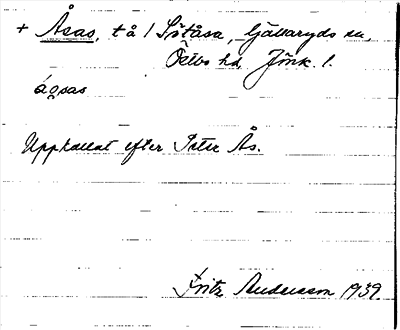 + Åsas, t å / Sötåsa, Gällaryds sn,
Östbo hd, Jönk. l.
Uppkallat efter Peter Ås.
Fritz Andersson 1939.